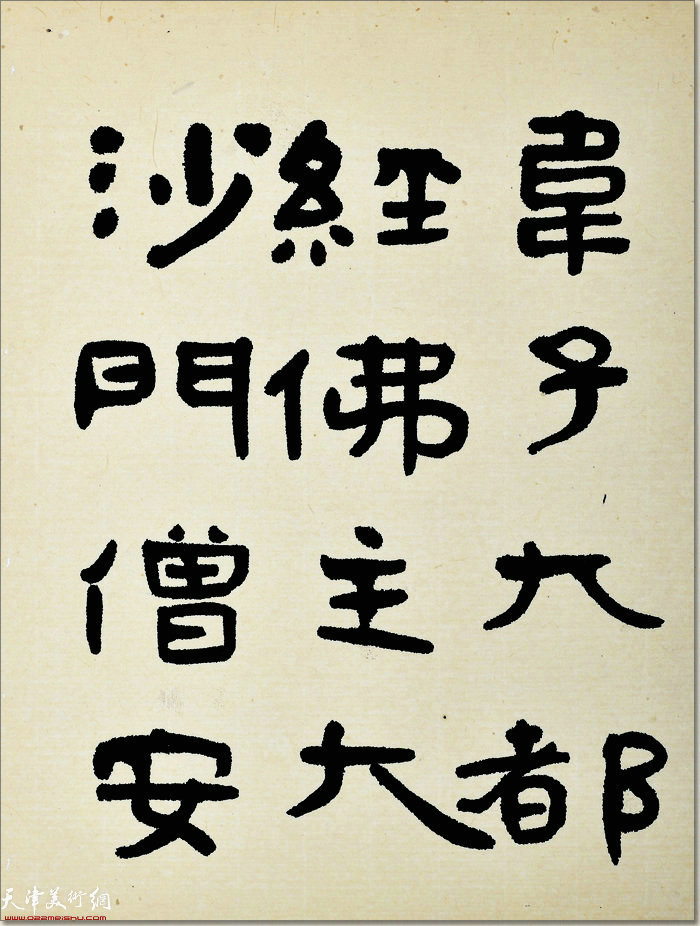 韋子大都
經佛主大
沙門僧安
天津美術網
www.022meishu.com